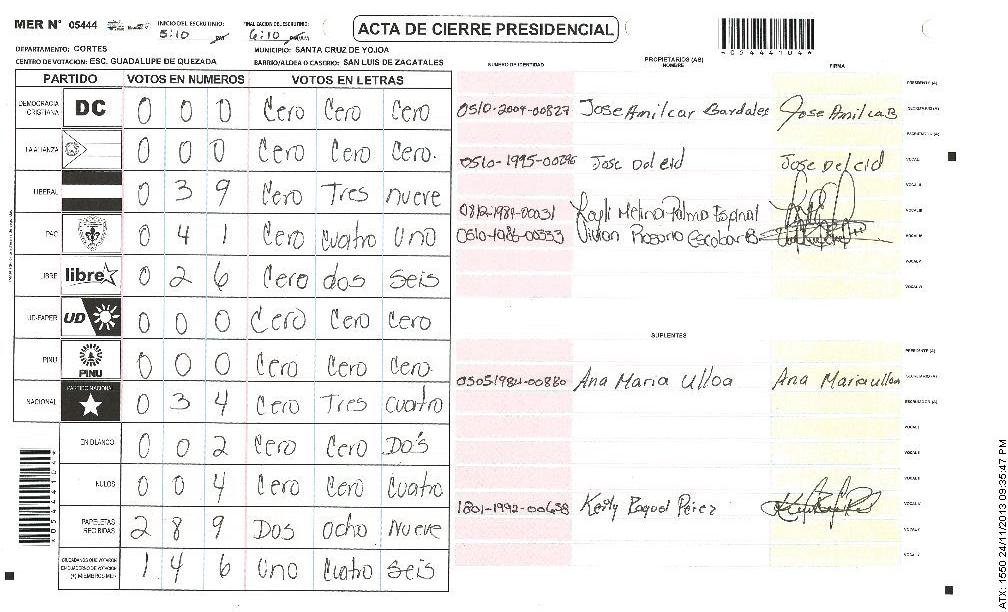 MER N° 05444
INICIO DEL ESCRUTINIO: 5:10 PM
FINALIZACION DEL ESCRUTINIO: 6:10
ACTA DE CIERRE PRESIDENCIAL
DEPARTAMENTO: CORTES
MUNICIPIO: SANTA CRUZ DE YOJOA
CENTRO DE VOTACION: ESC. GUADALUPE DE QUEZADA
BARRIO/ALDEA O CASERIO: SAN LUIS DE ZACATALES
PARTIDO VOTOS EN NUMEROS VOTOS EN LETRAS
DEMOCRACIA CRISTIANA DC 0 0 0 Cero Cero Cero
LA ALIANZA 0 0 0 Cero Cero Cero.
LIBERAL 0 3 9 Cero Tres nueve
PAC 0 4 1 Cero Cuatro Uno
LIBRE libre 0 2 6 Cero dos seis
UD-FAPER UD 0 0 0 Cero Cero Cero
PINU PINU 0 0 0 Cero Cero Cero.
NACIONAL PARTIDO NACIONAL 0 3 4 Cero Tres cuatro
EN BLANCO 0 0 2 Cero Cero Dos
NULOS 0 0 4 Cero Cero Cuatro
PAPELETAS RECIBIDAS 2 8 9 Dos ocho Nueve
CIUDADANOS QUE VOTARON EN CUADERNO DE VOTACION (+) MIEMBROS MER 1 4 6 Uno Cuatro Seis
NUMERO DE IDENTIDAD PROPIETARIOS (AS) NOMBRE FIRMA
PRESIDENTE (A)
0510-2009-00827 Jose Amilcar Bardales Jose Amilcar B SECRETARIO (A)
ESCRUTADOR (A)
0510-1995-00296 Jose Del cid Jose Del cid VOCAL I
VOCAL II
0812-1989-00031 Melina Palma Espinal VOCAL III
0510-1986-00333 Vivian Rosario Escobar B VOCAL IV
VOCAL V
VOCAL VI
SUPLENTES
PRESIDENTE (A)
0505-1984-00880 Ana Maria Ulloa Ana Maria ulloa SECRETARIO (A)
ESCRUTADOR (A)
VOCAL I
VOCAL II
VOCAL III
1801-1992-00658 Keily Raquel Pérez VOCAL IV
VOCAL V
A05444104
ATX: 1550 24/11/2013 09:35:47 PM